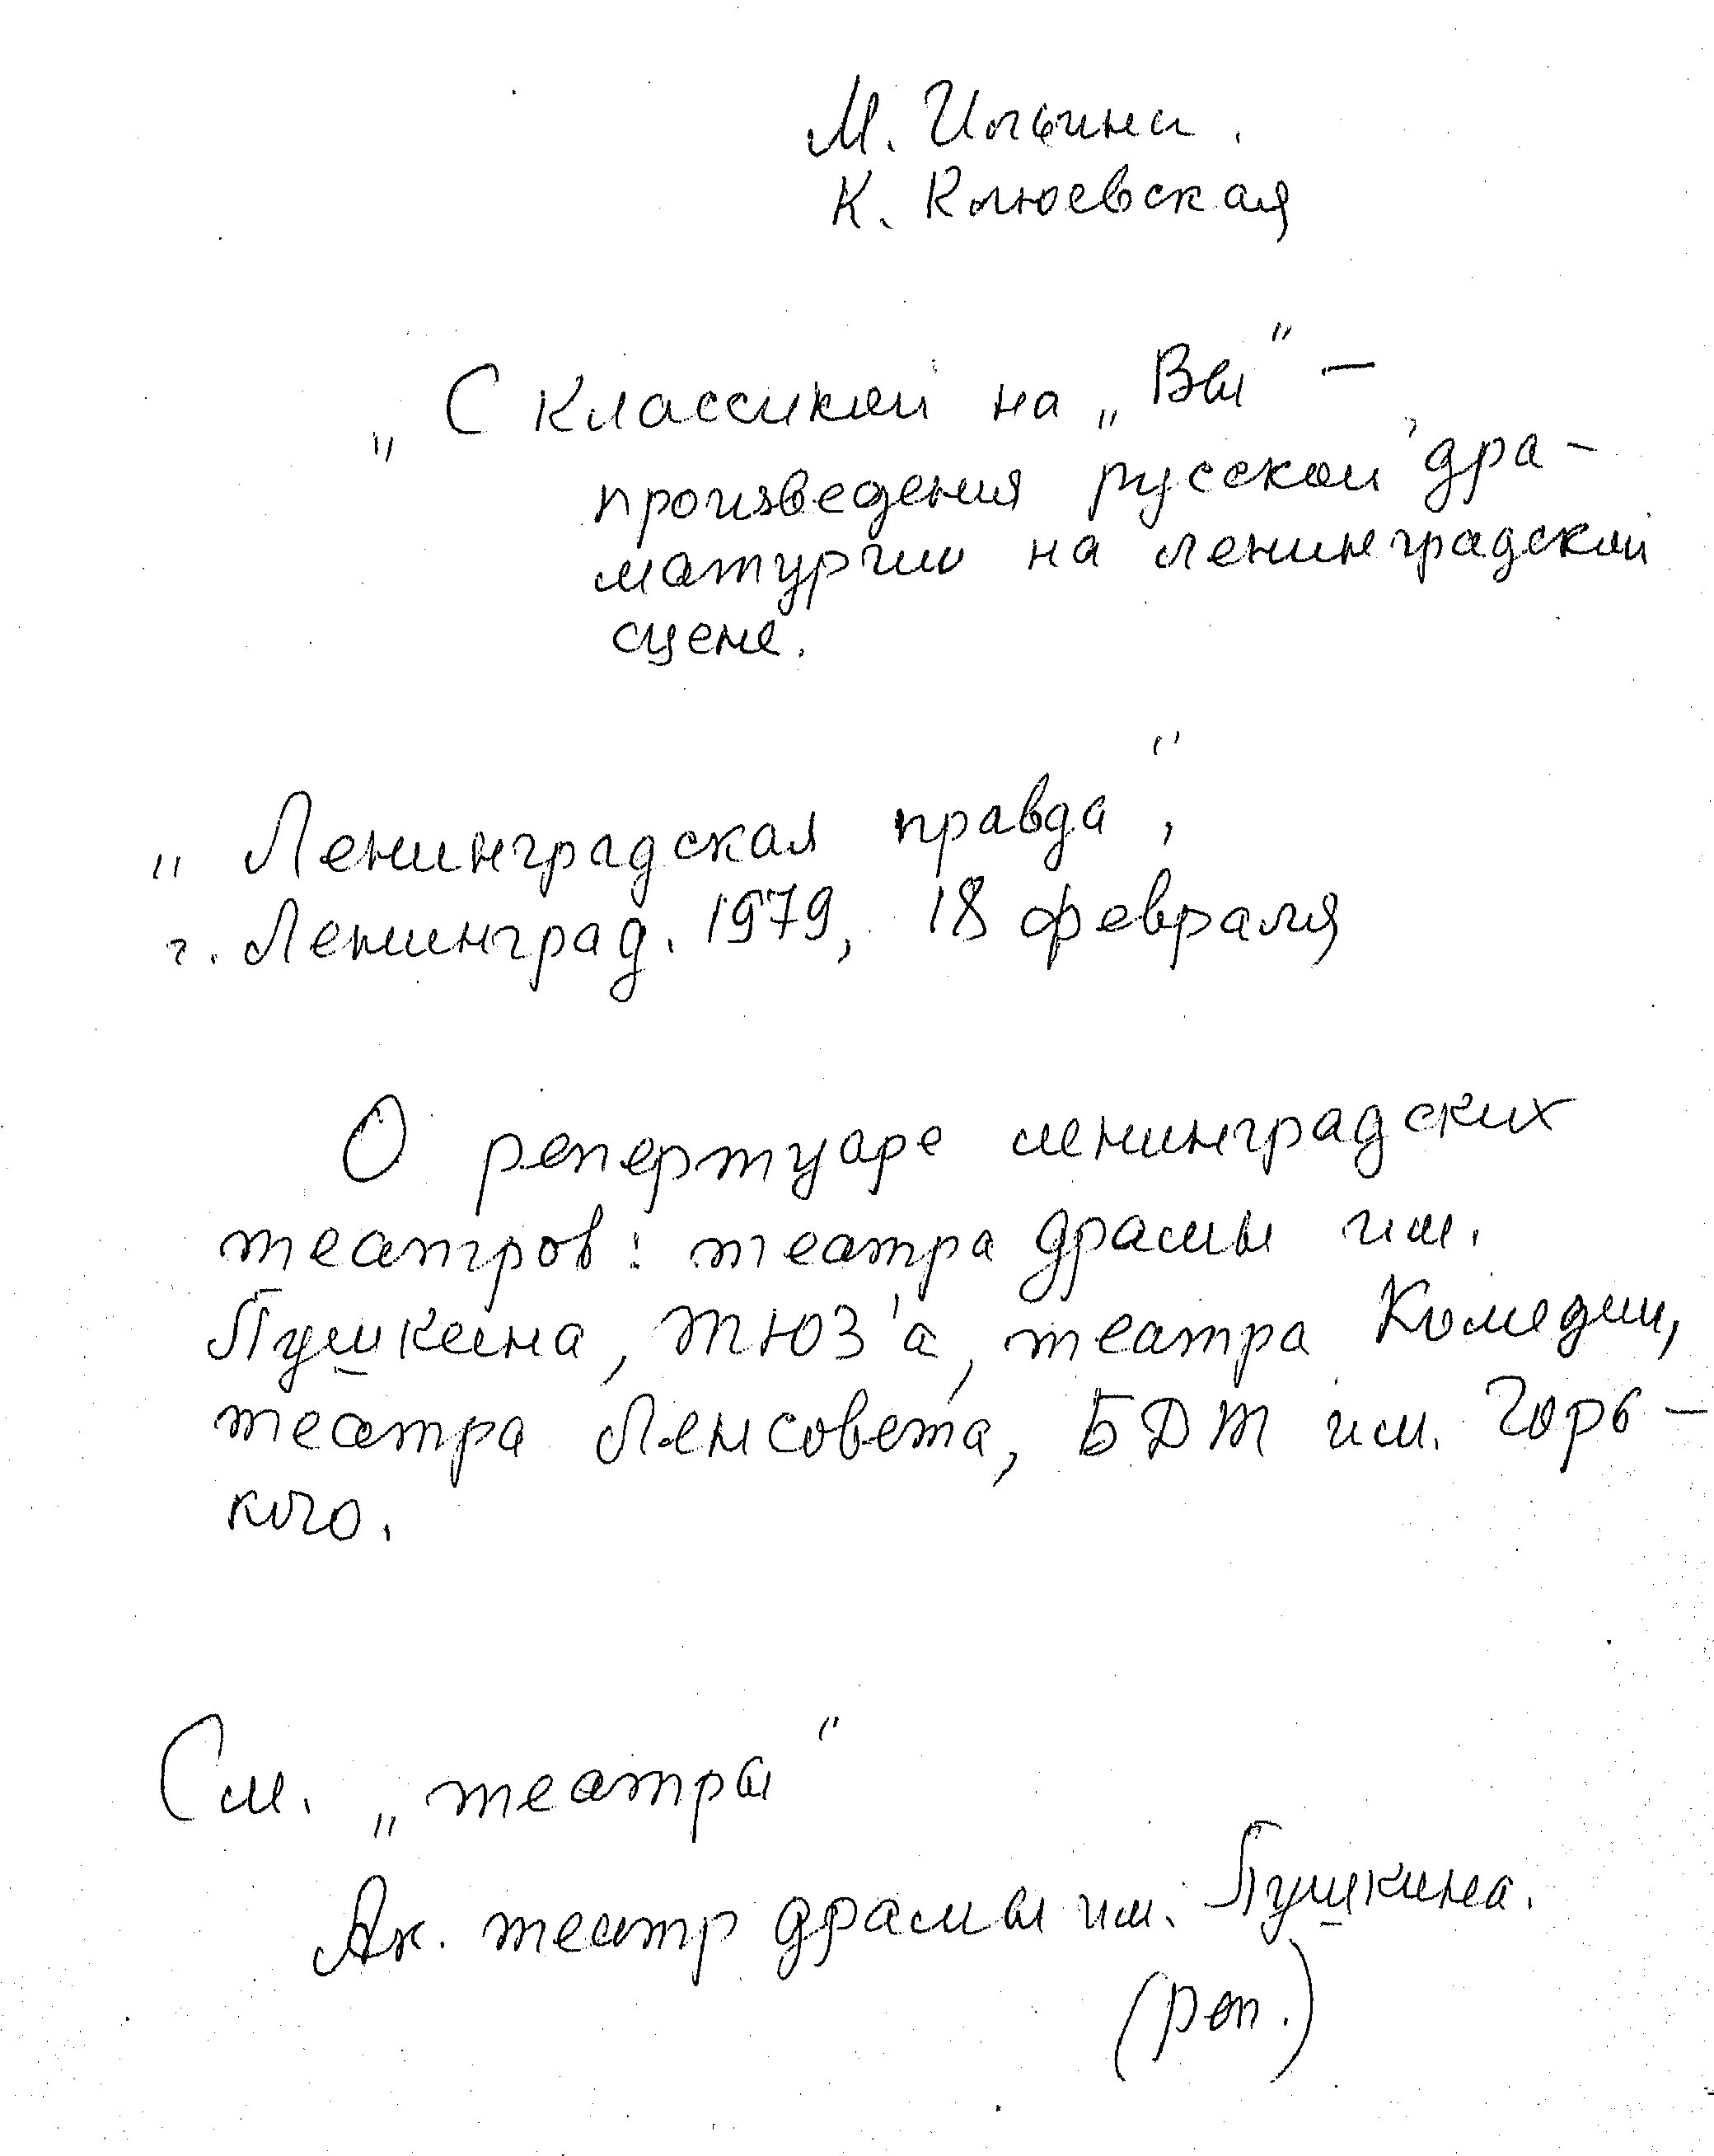 М. Ильина.
К. Клюевская
„С классикой на „Вы“ –
произведения русской дра-
матургии на ленинградской
сцене.
„Ленинградская правда“,
г. Ленинград. 1979, 18 февраля
О репертуаре ленинградских
театров: театра драмы им.
Пушкина, ТЮЗ'а, театра Комедии,
театра Ленсовета, БДТ им. Горь-
кого.
См. „театры“
Ак. театр драмы им. Пушкина.
(реп.)